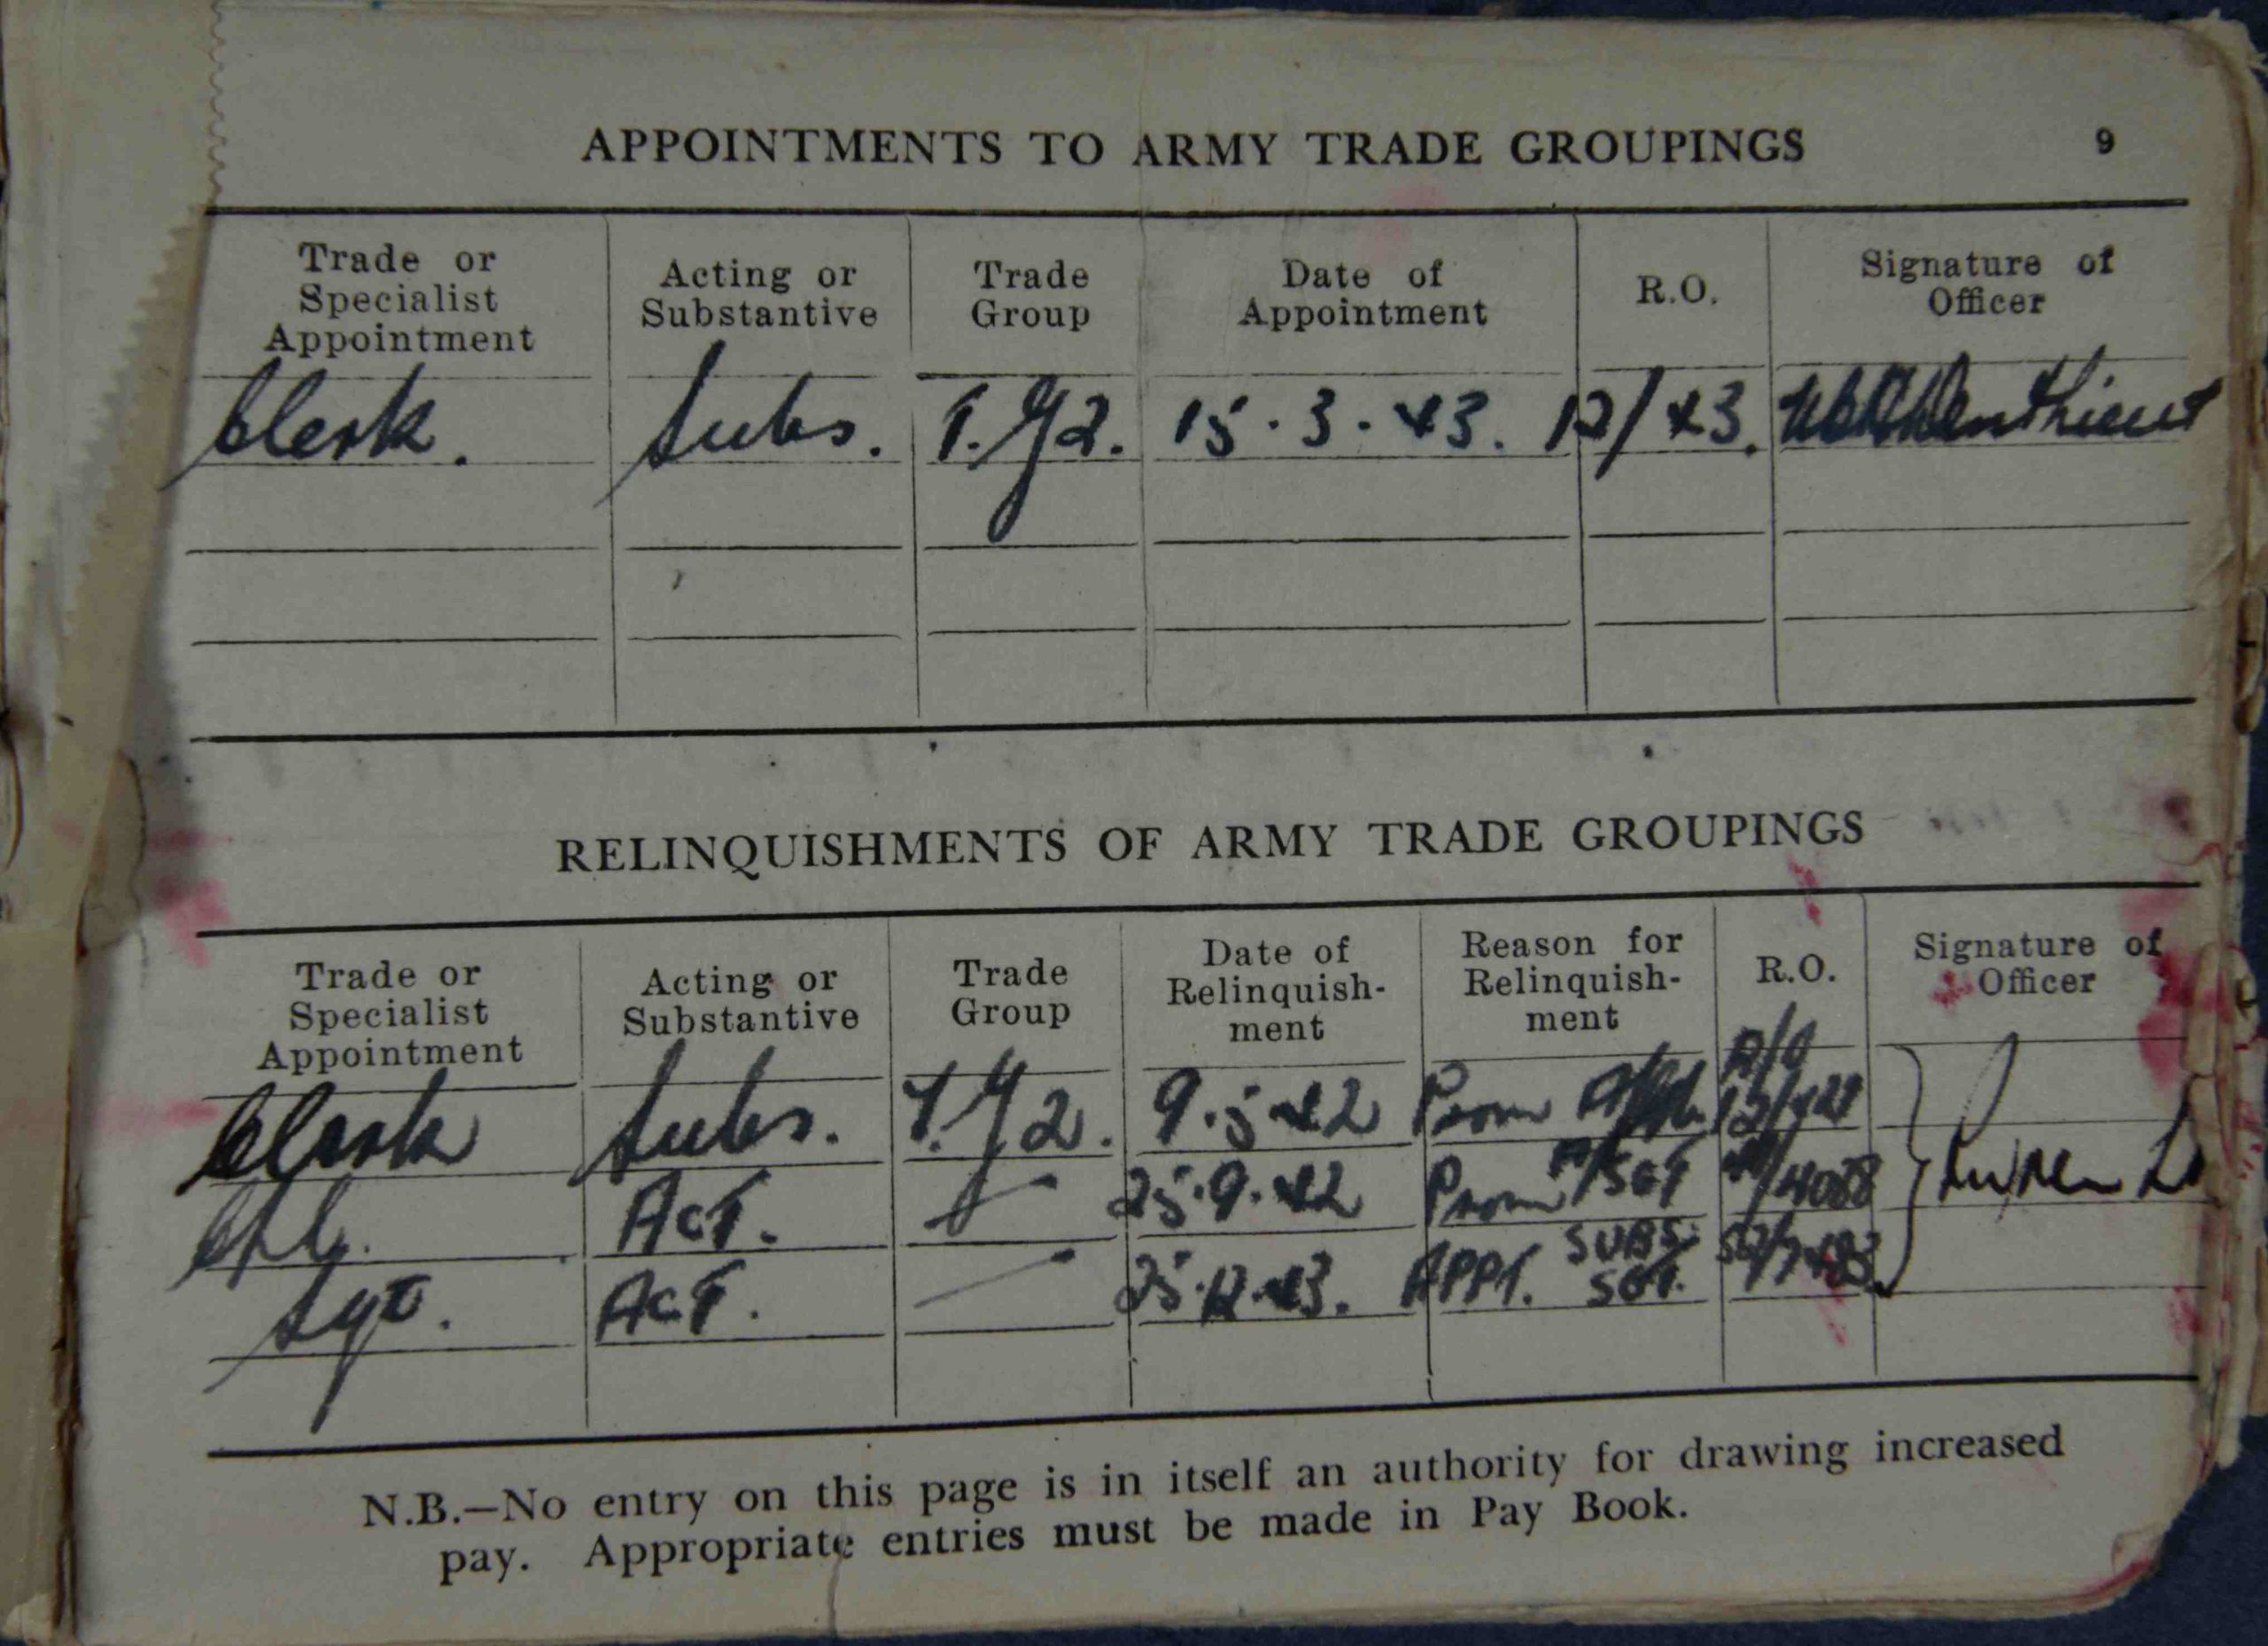 APPOINTMENTS TO ARMY TRADE GROUPINGS 9
Trade or Specialist Appointment Acting or Substantive Trade Group Date of Appointment R.O. Signature of Officer
Clerk. Subs. T.G2. 15.3.43. 12/43.
RELINQUISHMENTS OF ARMY TRADE GROUPINGS
Trade or Specialist Appointment Acting or Substantive Trade Group Date of Relinquish-ment Reason for Relinquish-ment R.O. Signature of Officer
Clerk Subs. T.G2. 9.5.42 Prom
Cpl. ACT. 25.9.42 Prom A/SGT
Sgt. ACT. 25.12.43. APPT. SUBS. SGT.
N.B.—No entry on this page is in itself an authority for drawing increased
pay. Appropriate entries must be made in Pay Book.